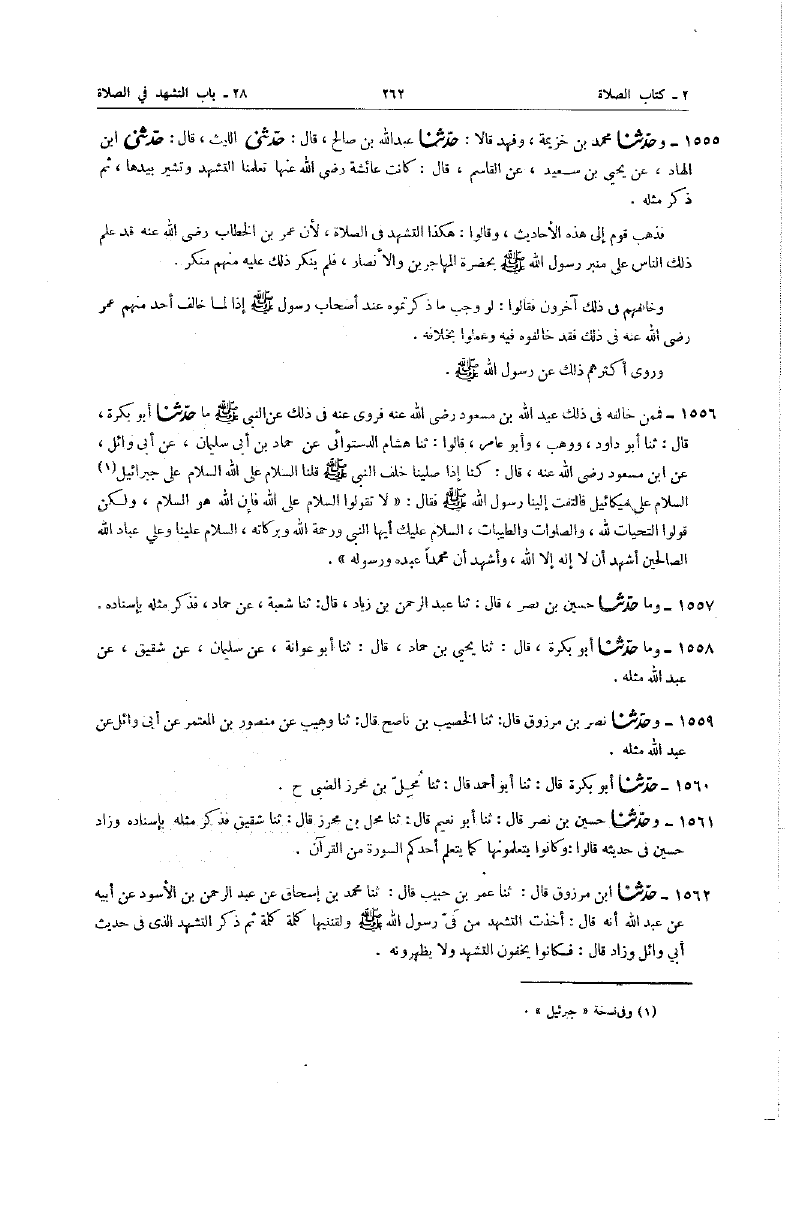 ٢ ـ كتاب الصلاة ٢٦٢ ٢٨ ـ باب التشهد في الصلاة
١٥٥٥ ـ وحدّثنا محمد بن خزيمة ، وفهد قالا : حدّثنا عبدالله بن صالح ، قال : حدّثنى الليث ، قال : حدّثنى ابن
الهاد ، عن يحيي بن سعيد ، عن القاسم ، قال : كانت عائشة رضى الله عنها تعلمنا التشهد وتشير بيدها ، ثم
ذكر مثله .
فذهب قوم إلى هذه الأحاديث ، وقالوا : هكذا التشهد فى الصلاة ، لأن عمر بن الخطاب رضى الله عنه قد علم
ذلك الناس على منبر رسول الله ﷺ بحضرة المهاجرين والأنصار ، فلم ينكر ذلك عليه منهم منكر .
وخالفهم فى ذلك آخرون فقالوا : لو وجب ما ذكرتموه عند أصحاب رسول ﷺ إذا لما خالف أحد منهم عمر
رضى الله عنه فى ذلك فقد خالفوه فيه وعملوا بخلافه .
وروى أكثرهم ذلك عن رسول الله ﷺ .
١٥٥٦ ـ فمن خالفه فى ذلك عبد الله بن مسعود رضى الله عنه فروى عنه فى ذلك عن النبي ﷺ ما حدّثنا أبو بكرة ،
قال : ثنا أبو داود ، ووهب ، وأبو عامر ، قالوا : ثنا هشام الدستوائى عن حماد بن أبى سليمان ، عن أبى وائل ،
عن ابن مسعود رضى الله عنه ، قال : كنا إذا صلينا خلف النبي ﷺ قلنا السلام على الله السلام على جبرائيل(١)
السلام على ميكائيل فالتفت إلينا رسول الله ﷺ فقال : « لا تقولوا السلام على الله فإن الله هو السلام ، ولكن
قولوا التحيات لله ، والصلوات والطيبات ، السلام عليك أيها النبي ورحمة الله وبركاته ، السلام علينا وعلي عباد الله
الصالحين أشهد أن لا إله إلا الله ، وأشهد أن محمداً عبده ورسوله » .
١٥٥٧ ـ وما حدّثنا حسين بن نصر ، قال : ثنا عبد الرحمن بن زياد ، قال: ثنا شعبة ، عن حماد ، فذكر مثله بإسناده .
١٥٥٨ ـ وما حدّثنا أبو بكرة ، قال : ثنا يحيي بن حماد ، قال : ثنا أبو عوانة ، عن سليمان ، عن شقيق ، عن
عبد الله مثله .
١٥٥٩ ـ وحدّثنا نصر بن مرزوق قال: ثنا الخصيب بن ناصح قال: ثنا وهيب عن منصور بن المعتمر عن أبى وائل عن
عبد الله مثله .
١٥٦٠ ـ حدّثنا أبو بكرة قال : ثنا أبو أحمد قال : ثنا مُحِلّ بن محرز الضبى ح .
١٥٦١ ـ وحدّثنا حسين بن نصر قال : ثنا أبو نعيم قال : ثنا محل بن محرز قال : ثنا شقيق فذكر مثله بإسناده وزاد
حسين فى حديثه قالوا :وكانوا يتعلمونها كما يتعلم أحدكم السورة من القرآن .
١٥٦٢ ـ حدّثنا ابن مرزوق قال : ثنا عمر بن حبيب قال : ثنا محمد بن إسحاق عن عبد الرحمن بن الأسود عن أبيه
عن عبد الله أنه قال : أخذت التشهد من فىّ رسول الله ﷺ ولقننيها كلمة كلمة ثم ذكر التشهد الذى فى حديث
أبي وائل وزاد قال : فكانوا يخفون التشهد ولا يظهرونه .
(١) وفى نسخة « جبرئيل » .